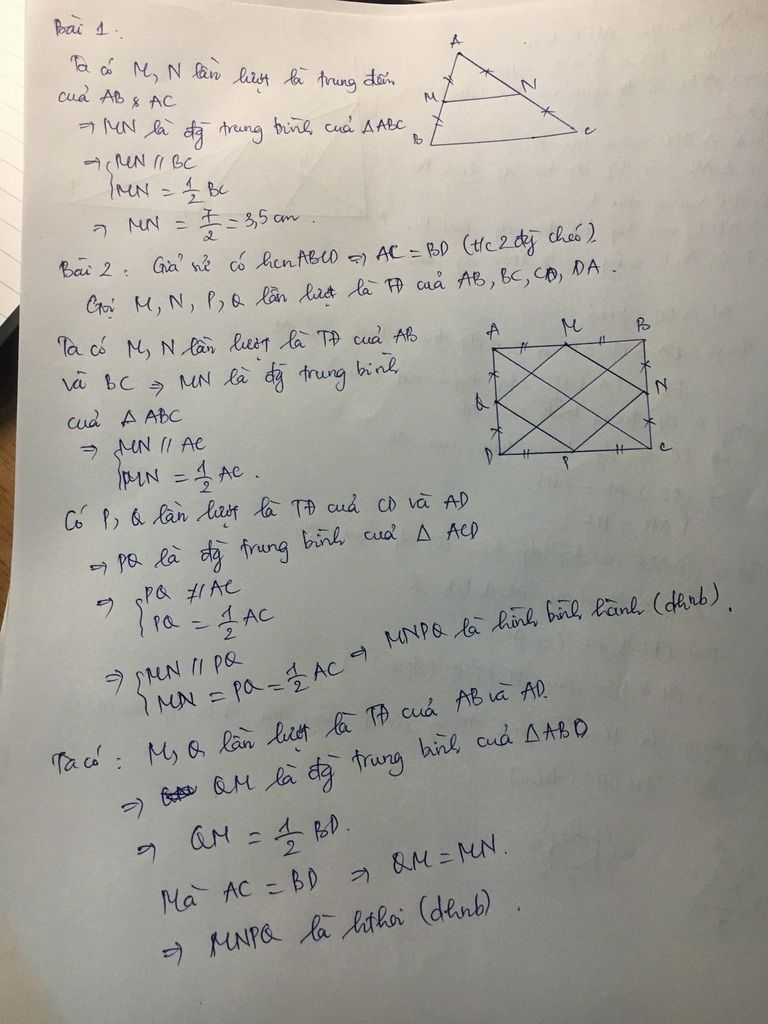 Bài 1.
Ta có M, N lần lượt là trung điểm
của AB & AC
⇒ MN là đg trung bình của △ABC
⇒ { MN // BC
MN = 1/2 BC
⇒ MN = 7/2 = 3,5 cm.
A
M
N
B
C
Bài 2: Giả sử có hcn ABCD ⇒ AC = BD (t/c 2 đg chéo)
Gọi M, N, P, Q lần lượt là TĐ của AB, BC, CD, DA.
Ta có M, N lần lượt là TĐ của AB
và BC ⇒ MN là đg trung bình
của △ ABC
⇒ { MN // AC
MN = 1/2 AC.
A
M
B
Q
N
D
P
C
Có P, Q lần lượt là TĐ của CD và AD
⇒ PQ là đg trung bình của △ ACD
⇒ { PQ // AC
PQ = 1/2 AC
⇒ { MN // PQ
MN = PQ = 1/2 AC ⇒ MNPQ là hình bình hành (dhnb).
Ta có: M, Q lần lượt là TĐ của AB và AD.
⇒ QM là đg trung bình của △ABD
⇒ QM = 1/2 BD.
Mà AC = BD ⇒ QM = MN.
⇒ MNPQ là hthoi (dhnb).